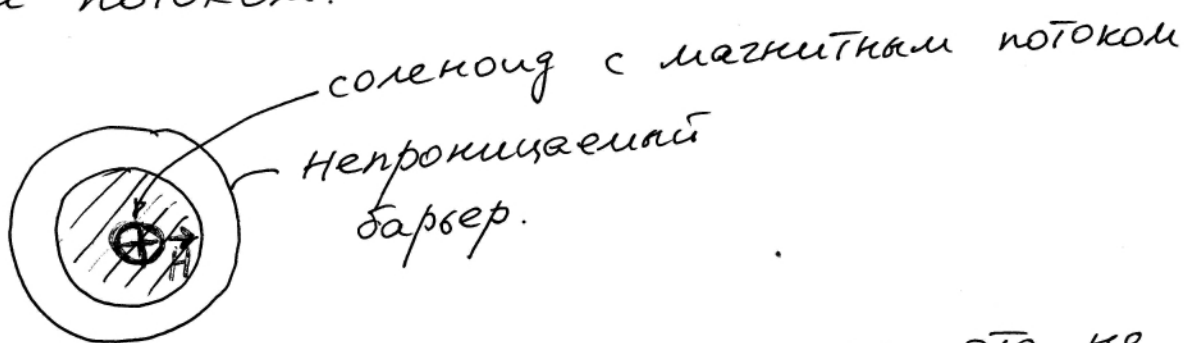 потоком.
соленоид с магнитным потоком
непроницаемый
барьер.
H